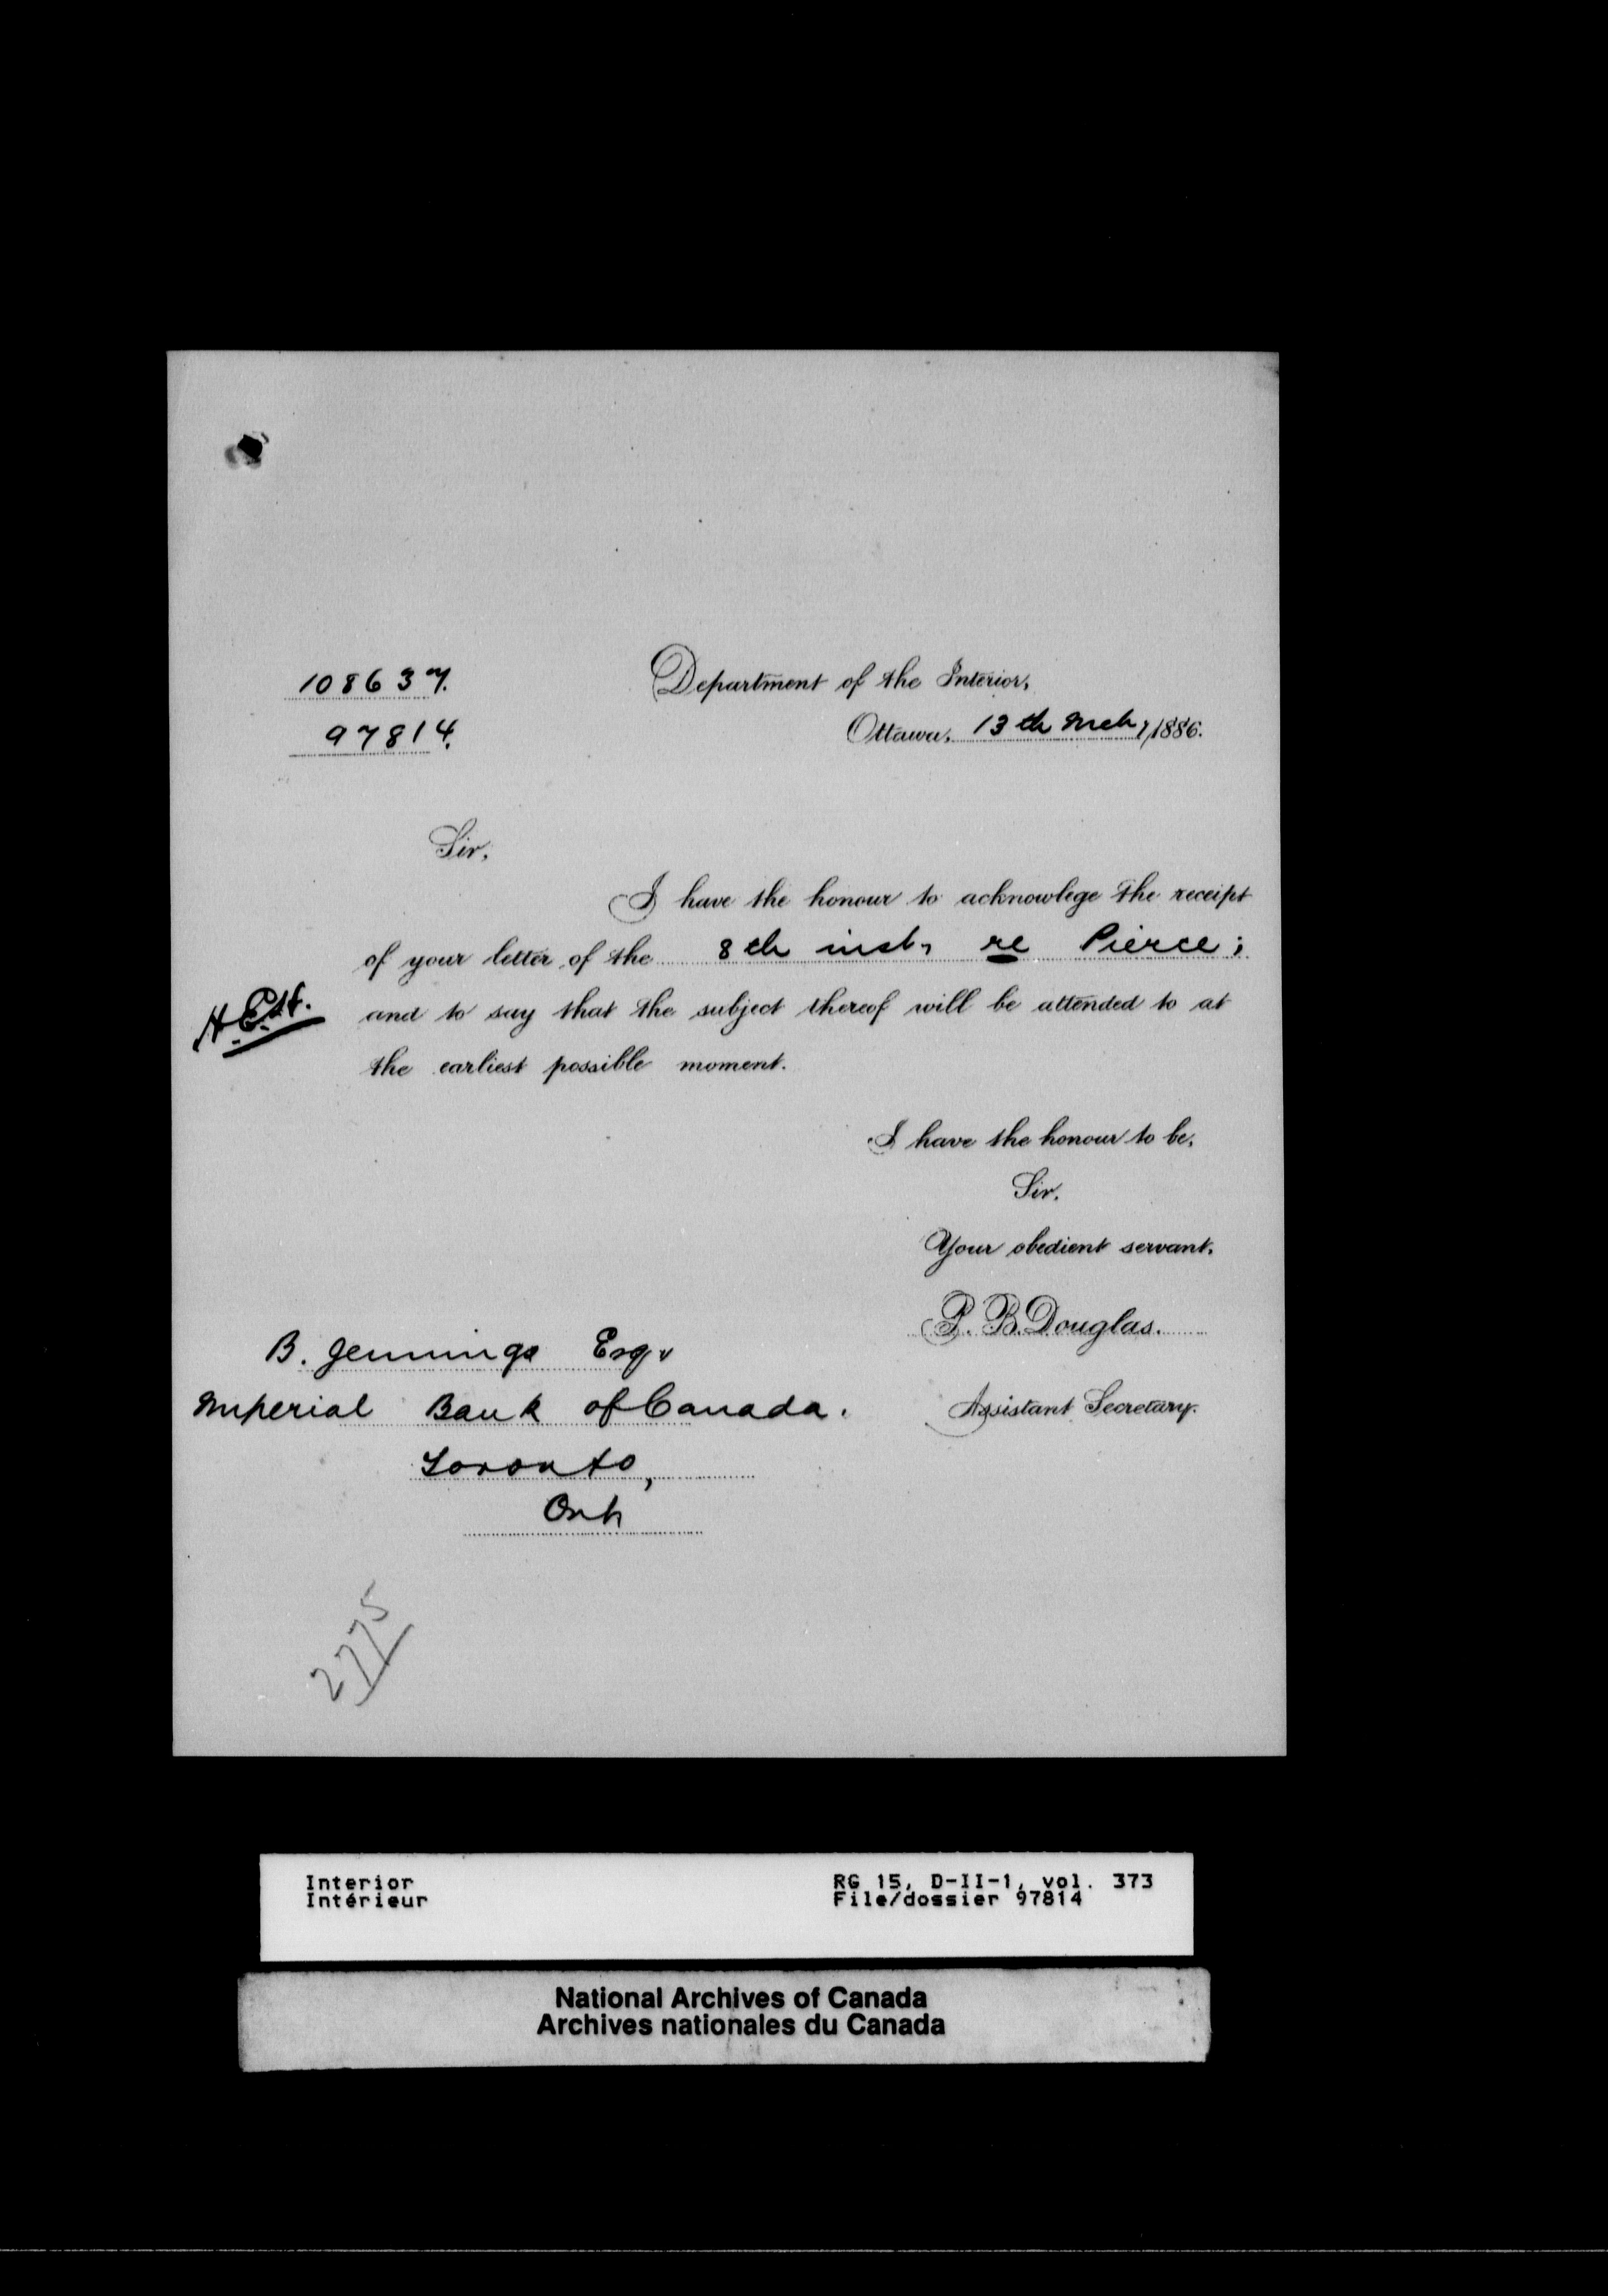 108637.
97814.
Department of the Interior,
Ottawa, 13th Mch, 1886.
Sir,
I have the honour to acknowlege the receipt
of your letter of the 8th inst, re Pierce;
and to say that the subject thereof will be attended to at
the earliest possible moment.
I have the honour to be,
Sir,
Your obedient servant,
P. B. Douglas.
Assistant Secretary.
B. Jennings Esq.
Imperial Bank of Canada.
Toronto,
Ont
2775
Interior
Intérieur
RG 15, D-II-1, vol. 373
File/dossier 97814
National Archives of Canada
Archives nationales du Canada